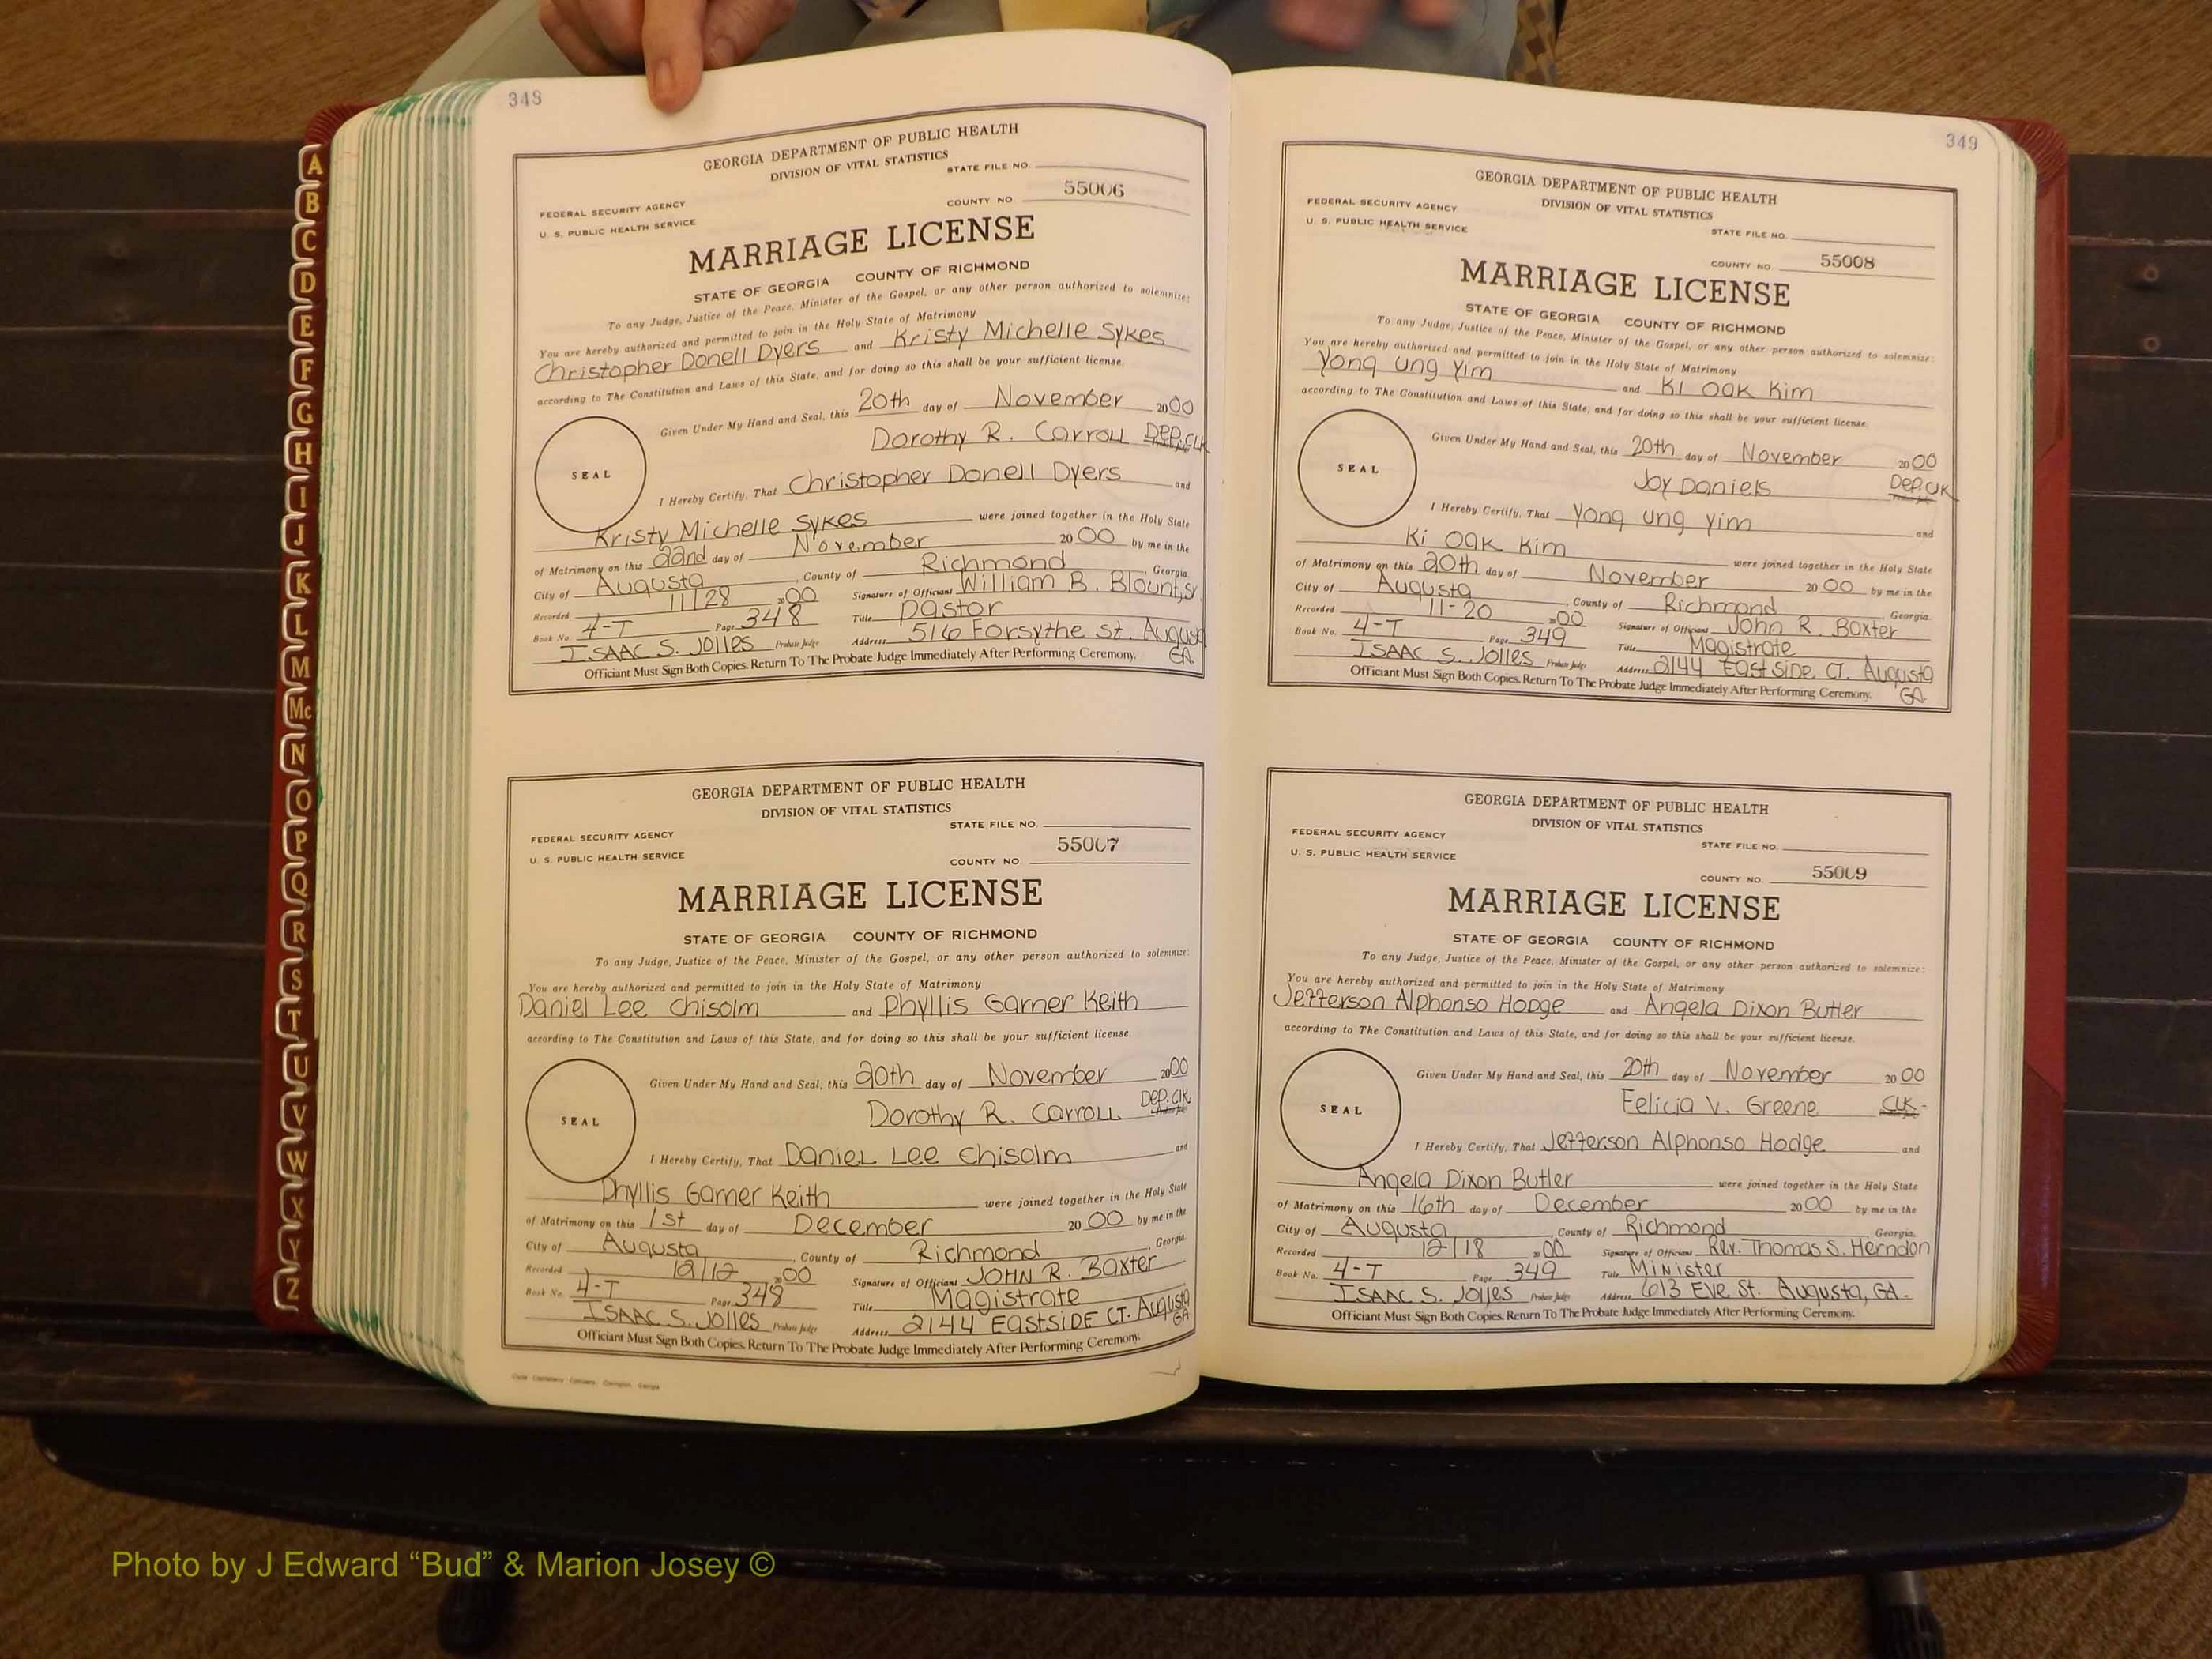 A
B
C
D
E
F
G
H
I
J
K
L
M
Mc
N
O
P
Q
R
S
T
U
V
W
X
Y
Z
348
GEORGIA DEPARTMENT OF PUBLIC HEALTH
DIVISION OF VITAL STATISTICS
STATE FILE NO.
FEDERAL SECURITY AGENCY
U. S. PUBLIC HEALTH SERVICE
COUNTY NO 55006
MARRIAGE LICENSE
STATE OF GEORGIA COUNTY OF RICHMOND
To any Judge, Justice of the Peace, Minister of the Gospel, or any other person authorized to solemnize:
You are hereby authorized and permitted to join in the Holy State of Matrimony
Christopher Donell Dyers and Kristy Michelle Sykes
according to The Constitution and Laws of this State, and for doing so this shall be your sufficient license.
Given Under My Hand and Seal, this 20th day of November 2000
Dorothy R. Carroll Dep. Clk
SEAL
I Hereby Certify, That Christopher Donell Dyers and
Kristy Michelle Sykes were joined together in the Holy State
of Matrimony on this 22nd day of November 2000 by me in the
City of Augusta, County of Richmond, Georgia
Recorded 11/28 2000 Signature of Officiant William B. Blount, Sr.
Book No. 4-T Page 348 Title Pastor
Isaac S. Jolles Probate Judge Address 516 Forsythe St. Augusta GA
Officiant Must Sign Both Copies. Return To The Probate Judge Immediately After Performing Ceremony.
GEORGIA DEPARTMENT OF PUBLIC HEALTH
DIVISION OF VITAL STATISTICS
STATE FILE NO.
FEDERAL SECURITY AGENCY
U. S. PUBLIC HEALTH SERVICE
COUNTY NO. 55007
MARRIAGE LICENSE
STATE OF GEORGIA COUNTY OF RICHMOND
To any Judge, Justice of the Peace, Minister of the Gospel, or any other person authorized to solemnize:
You are hereby authorized and permitted to join in the Holy State of Matrimony
Daniel Lee Chisolm and Phyllis Garner Keith
according to The Constitution and Laws of this State, and for doing so this shall be your sufficient license.
Given Under My Hand and Seal, this 20th day of November 2000
Dorothy R. Carroll Dep. Clk
SEAL
I Hereby Certify, That Daniel Lee Chisolm and
Phyllis Garner Keith were joined together in the Holy State
of Matrimony on this 1st day of December 2000 by me in the
City of Augusta, County of Richmond, Georgia
Recorded 12/12 2000 Signature of Officiant John R. Baxter
Book No. 4-T Page 348 Title Magistrate
Isaac S. Jolles Probate Judge Address 2144 Eastside Ct. Augusta GA
Officiant Must Sign Both Copies. Return To The Probate Judge Immediately After Performing Ceremony.
349
GEORGIA DEPARTMENT OF PUBLIC HEALTH
DIVISION OF VITAL STATISTICS
FEDERAL SECURITY AGENCY
U. S. PUBLIC HEALTH SERVICE
STATE FILE NO.
COUNTY NO 55008
MARRIAGE LICENSE
STATE OF GEORGIA COUNTY OF RICHMOND
To any Judge, Justice of the Peace, Minister of the Gospel, or any other person authorized to solemnize:
You are hereby authorized and permitted to join in the Holy State of Matrimony
Yong Ung Yim and Ki Oak Kim
according to The Constitution and Laws of this State, and for doing so this shall be your sufficient license.
Given Under My Hand and Seal, this 20th day of November 2000
Joy Daniels Dep. Clk
SEAL
I Hereby Certify, That Yong Ung Yim and
Ki Oak Kim were joined together in the Holy State
of Matrimony on this 20th day of November 2000 by me in the
City of Augusta, County of Richmond Georgia.
Recorded 11-20 2000 Signature of Officiant John R. Baxter
Book No. 4-T Page 349 Title Magistrate
Isaac S. Jolles Probate Judge Address 2144 Eastside Ct. Augusta GA
Officiant Must Sign Both Copies. Return To The Probate Judge Immediately After Performing Ceremony.
GEORGIA DEPARTMENT OF PUBLIC HEALTH
DIVISION OF VITAL STATISTICS
FEDERAL SECURITY AGENCY
U. S. PUBLIC HEALTH SERVICE
STATE FILE NO.
COUNTY NO. 55009
MARRIAGE LICENSE
STATE OF GEORGIA COUNTY OF RICHMOND
To any Judge, Justice of the Peace, Minister of the Gospel, or any other person authorized to solemnize:
You are hereby authorized and permitted to join in the Holy State of Matrimony
Jefferson Alphonso Hodge and Angela Dixon Butler
according to The Constitution and Laws of this State, and for doing so this shall be your sufficient license.
Given Under My Hand and Seal, this 20th day of November 2000
Felicia V. Greene Clk
SEAL
I Hereby Certify, That Jefferson Alphonso Hodge and
Angela Dixon Butler were joined together in the Holy State
of Matrimony on this 16th day of December 2000 by me in the
City of Augusta, County of Richmond, Georgia.
Recorded 12/18 2000 Signature of Officiant Rev. Thomas S. Herndon
Book No. 4-T Page 349 Title Minister
Isaac S. Jolles Probate Judge Address 613 Eve St. Augusta, GA.
Officiant Must Sign Both Copies. Return To The Probate Judge Immediately After Performing Ceremony.
Photo by J Edward “Bud” & Marion Josey ©